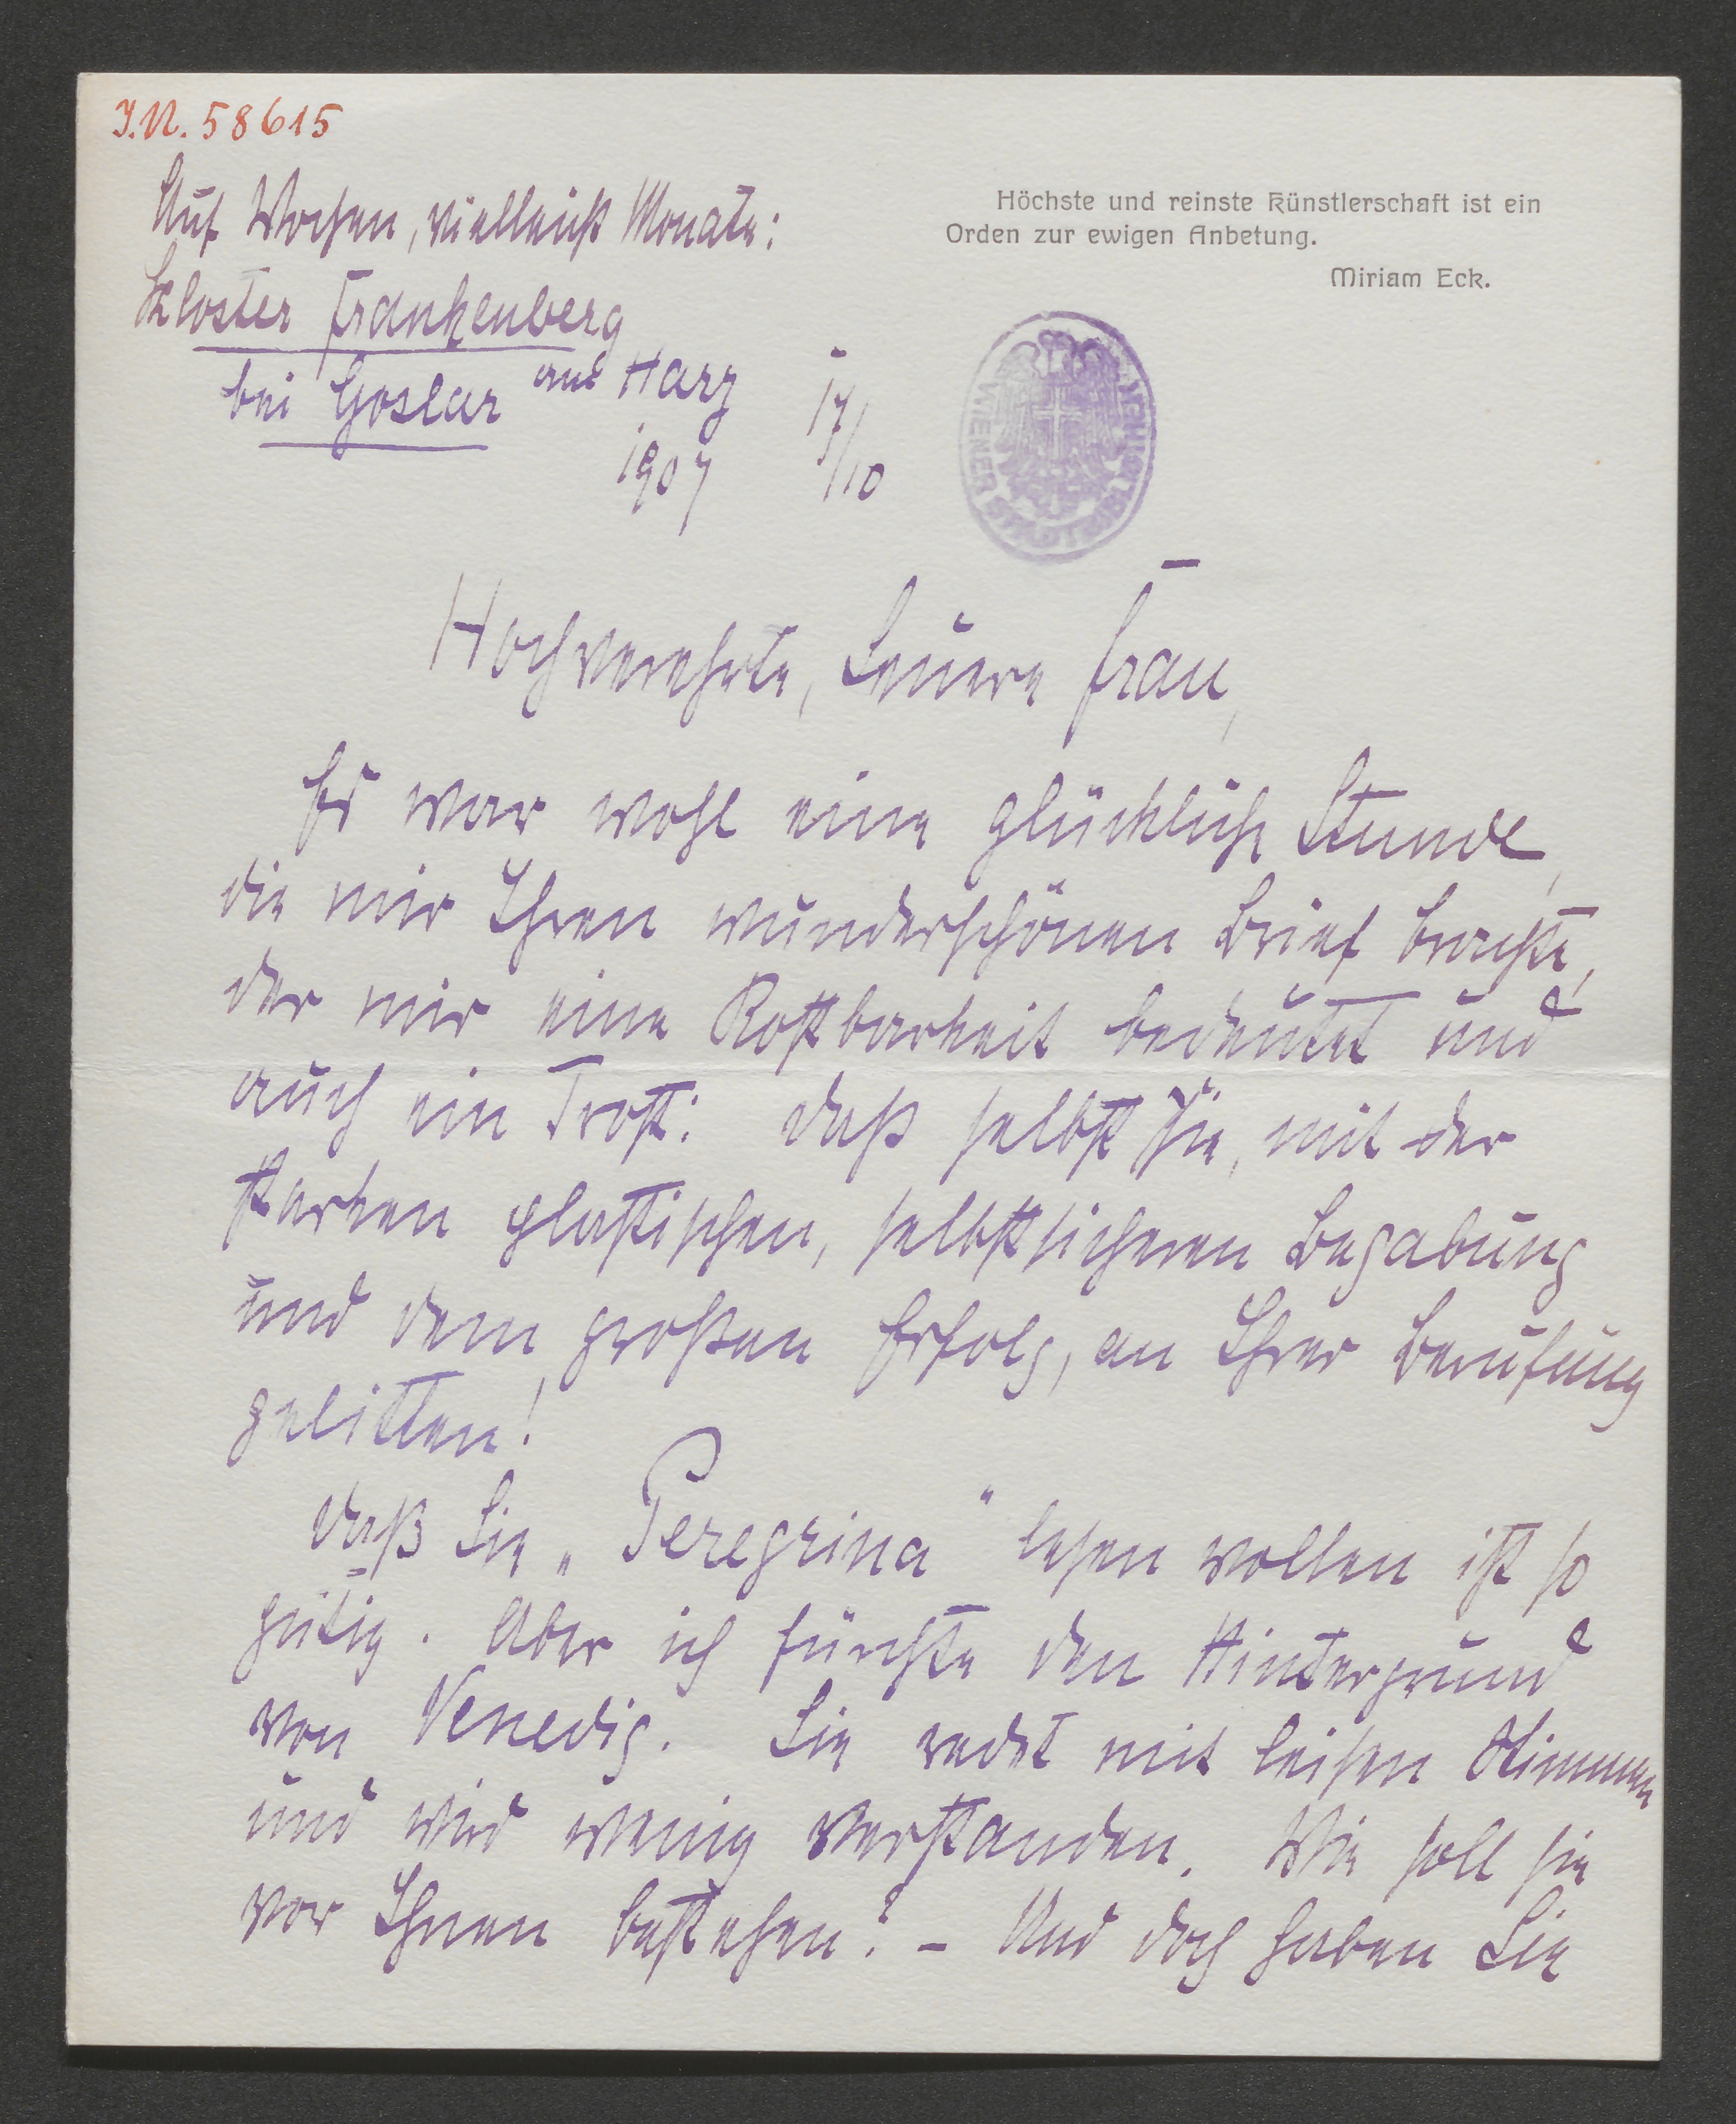 I.N. 58615
Auf Wochen, vielleicht Monate:
Kloster Frankenberg
bei Goslar am Harz
17/10
1907
Höchste und reinste Künstlerschaft ist ein
Orden zur ewigen Anbetung.
Miriam Eck.
WIENER STADTBIBLIOTHEK
Hochverehrte, teuere Frau,
Es war wohl eine glückliche Stunde,
die mir Ihren wunderschönen Brief brachte,
der mir eine Kostbarkeit bedeutet und
auch ein Trost: daß selbst Sie, mit der
starken plastischen, selbstsicheren Begabung
und dem großen Erfolg, an Ihrer Berufung
gelitten!
Daß Sie „Peregrina“ lesen wollen ist so
gütig. Aber ich fürchte den Hintergrund
von Venedig. Sie redet mit leisen Stimmen
und wird wenig verstanden. Wie soll sie
vor Ihnen bestehen? – Und doch haben Sie